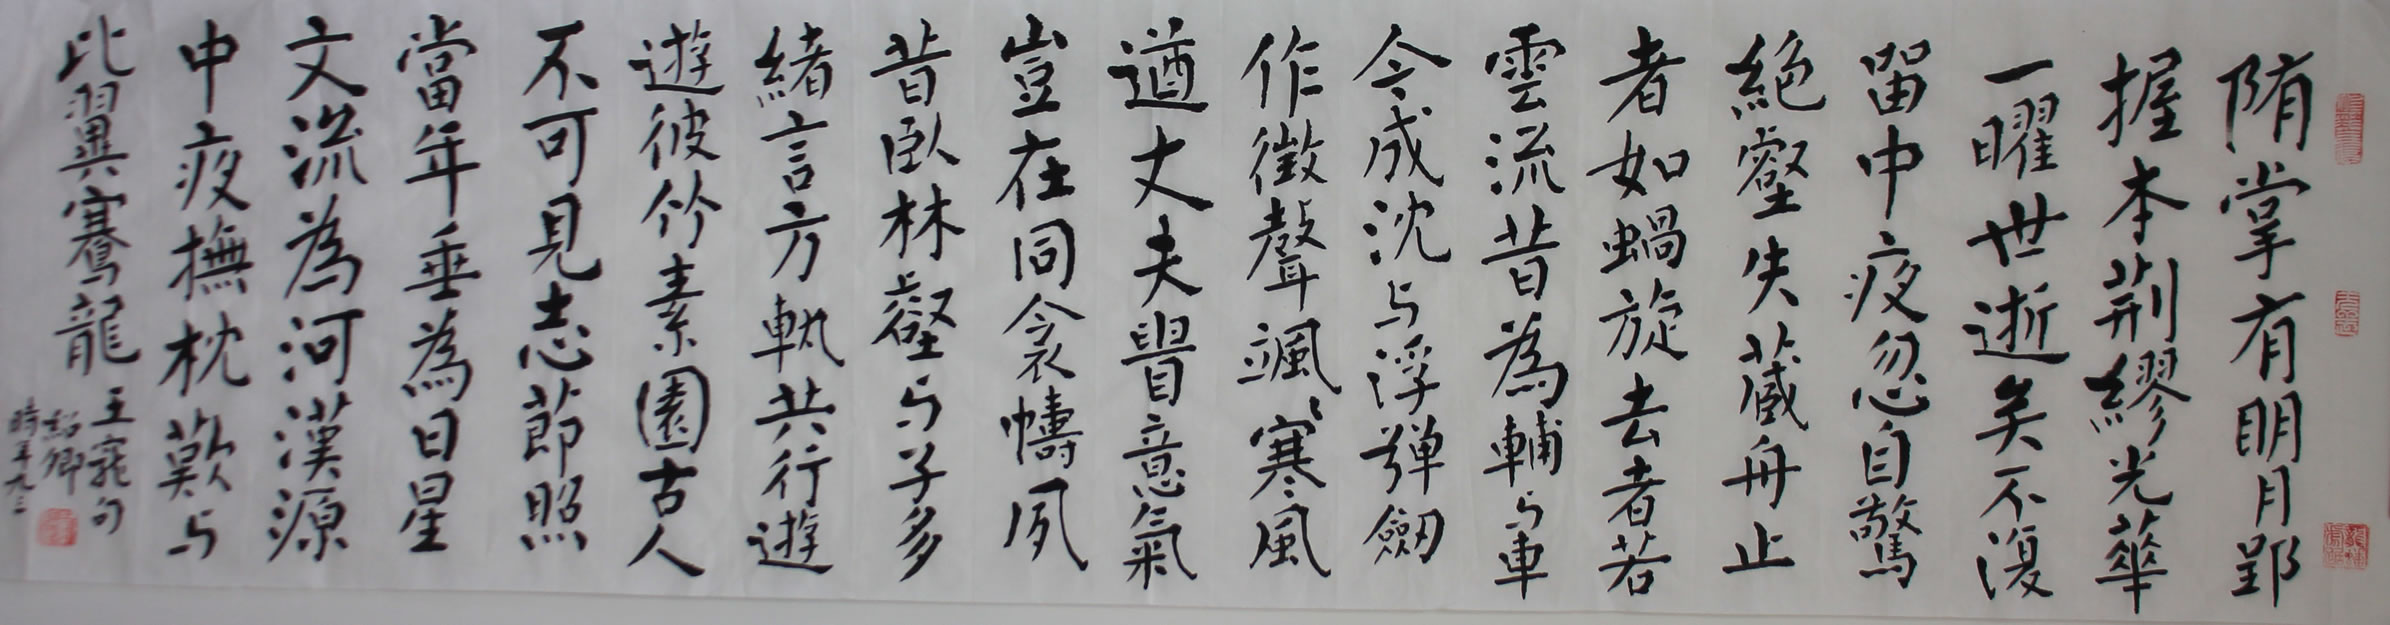 隋掌有明月郢
握本荆繆光華
一曜世逝矣不復
留中夜忽自驚
絶壑失藏舟止
者如蝸旋去者若
雲流昔為輔与車
今成沈与浮彈劔
作徵聲颯寒風
遒丈夫嘗意氣
豈在同衾幬夙
昔臥林壑与子多
緒言方軌共行遊
遊彼竹素園古人
不可見志節照
當年垂為日星
文流為河漢源
中夜撫枕歎与
比翼騫龍
王寵句
紹卿
時年九三